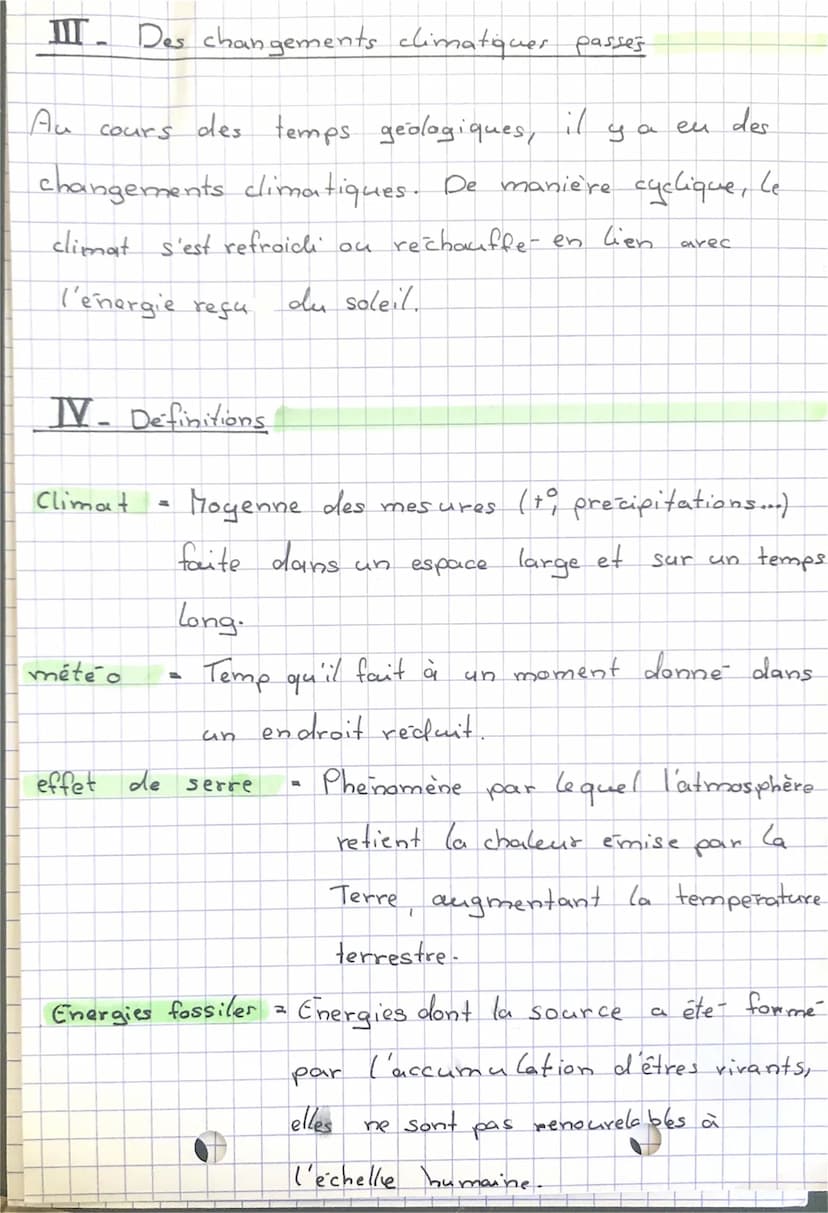 III - Des changements climatiques passés
Au cours des temps géologiques, il y a eu des
changements climatiques. De manière cyclique, le
climat s'est refroidi ou réchauffé en lien avec
l'énergie reçu du soleil.
IV - Définitions
Climat = Moyenne des mesures (t°, précipitations...)
faite dans un espace large et sur un temps
long.
météo = Temp qu'il fait à un moment donné dans
un endroit réduit.
effet de serre = Phénomène par lequel l'atmosphère
retient la chaleur émise par la
Terre, augmentant la température
terrestre.
Énergies fossiles = Énergies dont la source a été formé
par l'accumulation d'êtres vivants,
elles ne sont pas renouvelables à
l'échelle humaine.